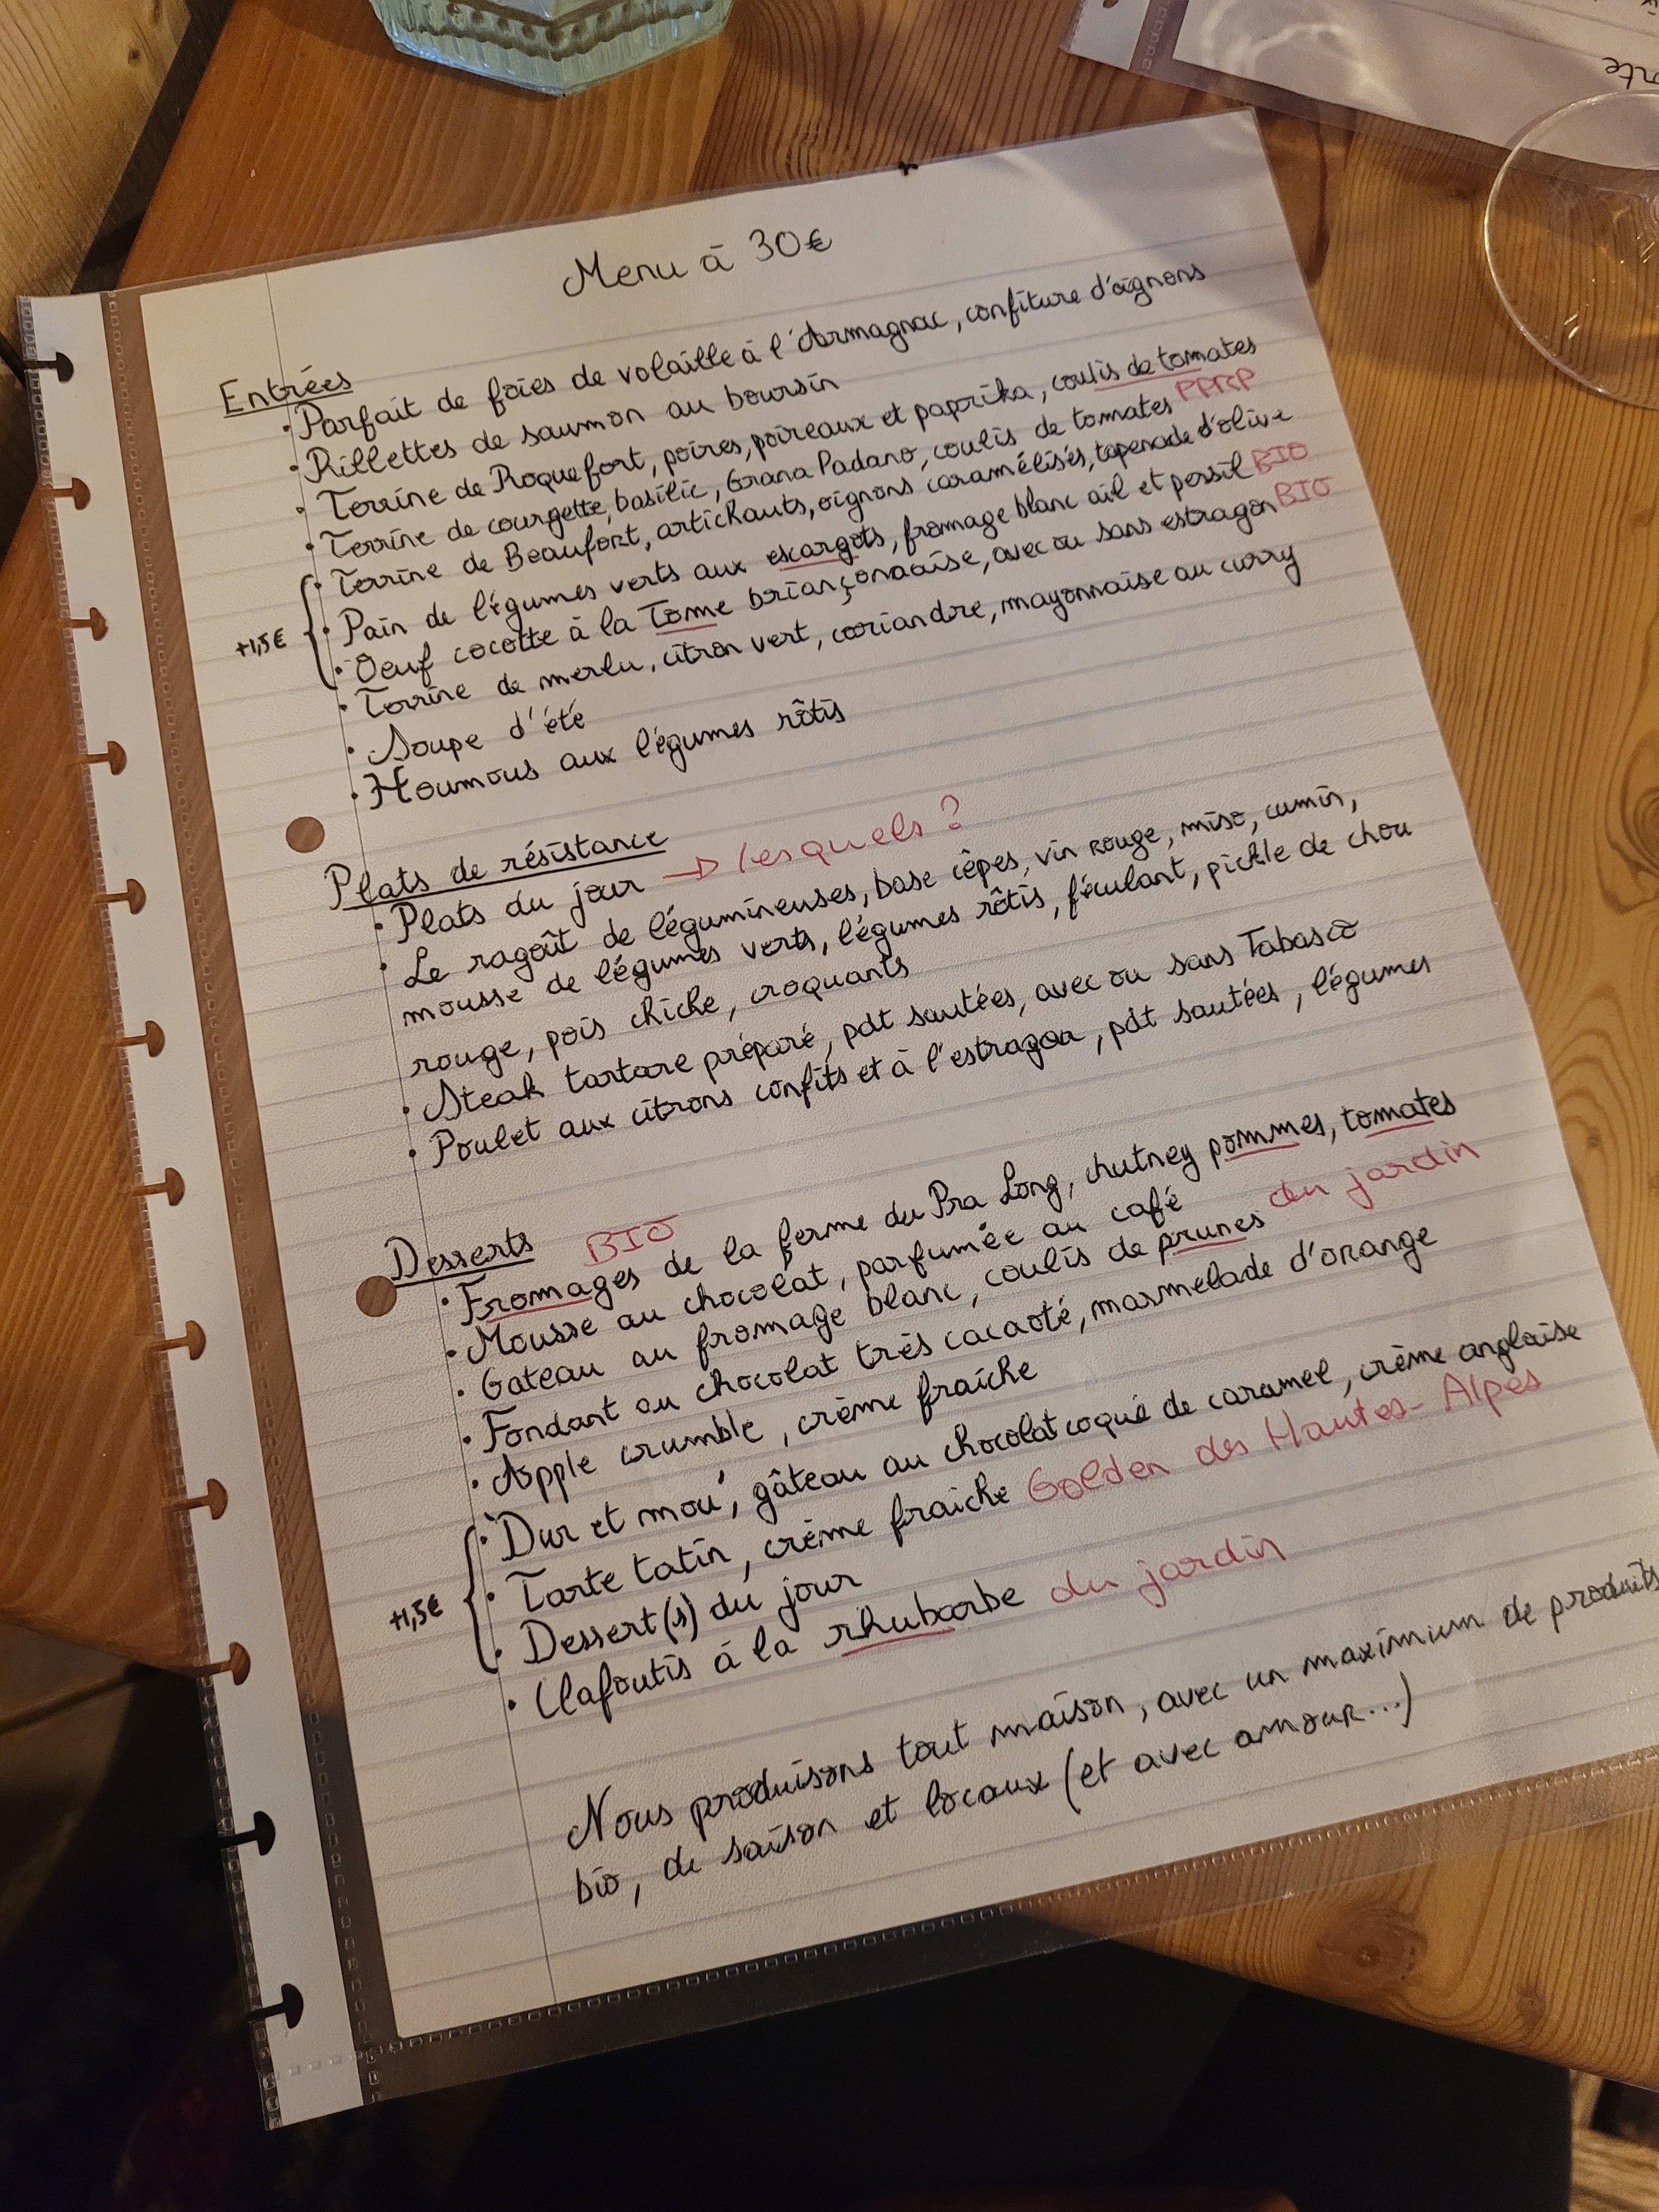 rte
Menu à 30€
Entrées
• Parfait de foies de volaille à l'Armagnac, confiture d'oignons
• Rillettes de saumon au boursin
• Terrine de Roquefort, poires, poireaux et paprika, coulis de tomates
• Terrine de courgette, basilic, Grana Padano, coulis de tomates PPRP
• Terrine de Beaufort, artichauts, oignons caramélisés, tapenade d'olive
• Pain de légumes verts aux escargots, fromage blanc ail et persil BIO
+1,5€ • Oeuf cocotte à la Tome briançonnaise, avec ou sans estragon BIO
• Terrine de merlu, citron vert, coriandre, mayonnaise au curry
• Soupe d'été
• Houmous aux légumes rôtis
Plats de résistance
• Plats du jour → lesquels ?
• Le ragoût de légumineuses, base cèpes, vin rouge, miso, cumin,
mousse de légumes verts, légumes rôtis, féculant, pickle de chou
rouge, pois chiche, croquants
• Steak tartare préparé, pdt sautées, avec ou sans Tabasco
• Poulet aux citrons confits et à l'estragon, pdt sautées, légumes
Desserts BIO
• Fromages de la ferme du Pra Long, chutney pommes, tomates
• Mousse au chocolat, parfumée au café
• Gateau au fromage blanc, coulis de prunes du jardin
• Fondant au chocolat très cacaoté, marmelade d'orange
• Apple crumble, crème fraîche
• 'Dur et mou', gâteau au chocolat coqué de caramel, crème anglaise
• Tarte tatin, crème fraiche Golden des Hautes-Alpes
+1,5€ • Dessert(s) du jour
• Clafoutis à la rhubarbe du jardin
Nous produisons tout maison, avec un maximum de produits
bio, de saison et locaux (et avec amour...)